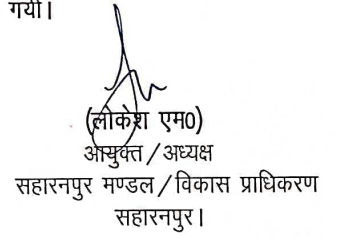 गयी।
(लोकेश एम0)
आयुक्त / अध्यक्ष
सहारनपुर मण्डल / विकास प्राधिकरण
सहारनपुर।